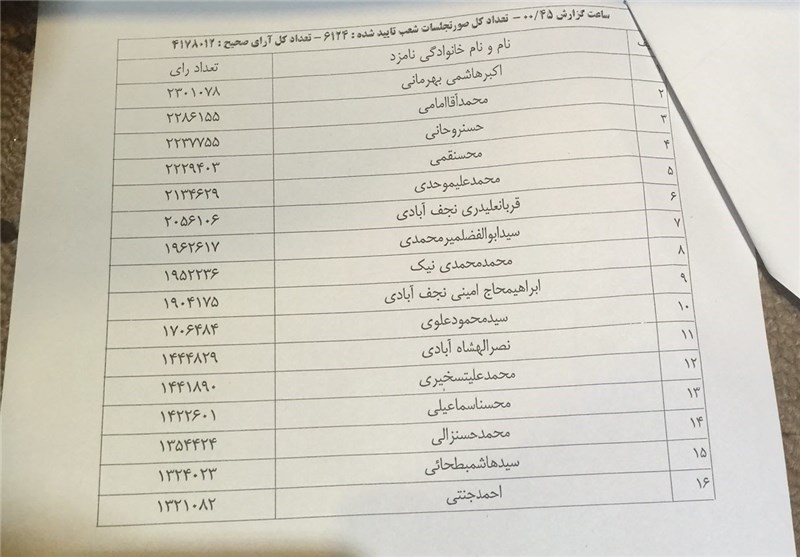 ساعت گزارش ۰۰/۴۵ – تعداد کل صورتجلسات شعب تایید شده : ۶۱۲۴ – تعداد کل آرای صحیح : ۴۱۷۸۰۱۲
نام و نام خانوادگی نامزد تعداد رای
اکبرهاشمی بهرمانی ۲۳۰۱۰۷۸
۲ محمدآقاامامی ۲۲۸۶۱۵۵
۳ حسنروحانی ۲۲۳۷۷۵۵
۴ محسنقمی ۲۲۲۹۴۰۳
۵ محمدعلیموحدی ۲۱۳۴۶۲۹
۶ قربانعلیدری نجف آبادی ۲۰۵۶۱۰۶
۷ سیدابوالفضلمیرمحمدی ۱۹۶۲۶۱۷
۸ محمدمحمدی نیک ۱۹۵۲۲۳۶
۹ ابراهیمحاج امینی نجف آبادی ۱۹۰۴۱۷۵
۱۰ سیدمحمودعلوی ۱۷۰۶۴۸۴
۱۱ نصرالهشاه آبادی ۱۴۴۴۸۲۹
۱۲ محمدعلیتسخیری ۱۴۴۱۸۹۰
۱۳ محسناسماعیلی ۱۴۲۲۶۰۱
۱۴ محمدحسنزالی ۱۳۵۴۴۲۴
۱۵ سیدهاشمبطحائی ۱۳۲۴۰۲۳
۱۶ احمدجنتی ۱۳۲۱۰۸۲